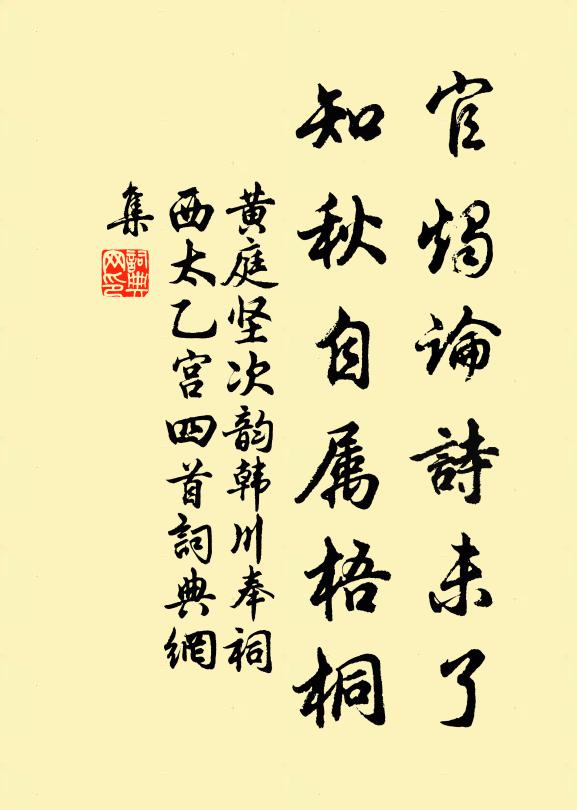 官燭論詩未了
知秋自属梧桐
黄庭坚次韵韩川奉祠
西太乙宫四首詞典網
集
詞典
网印